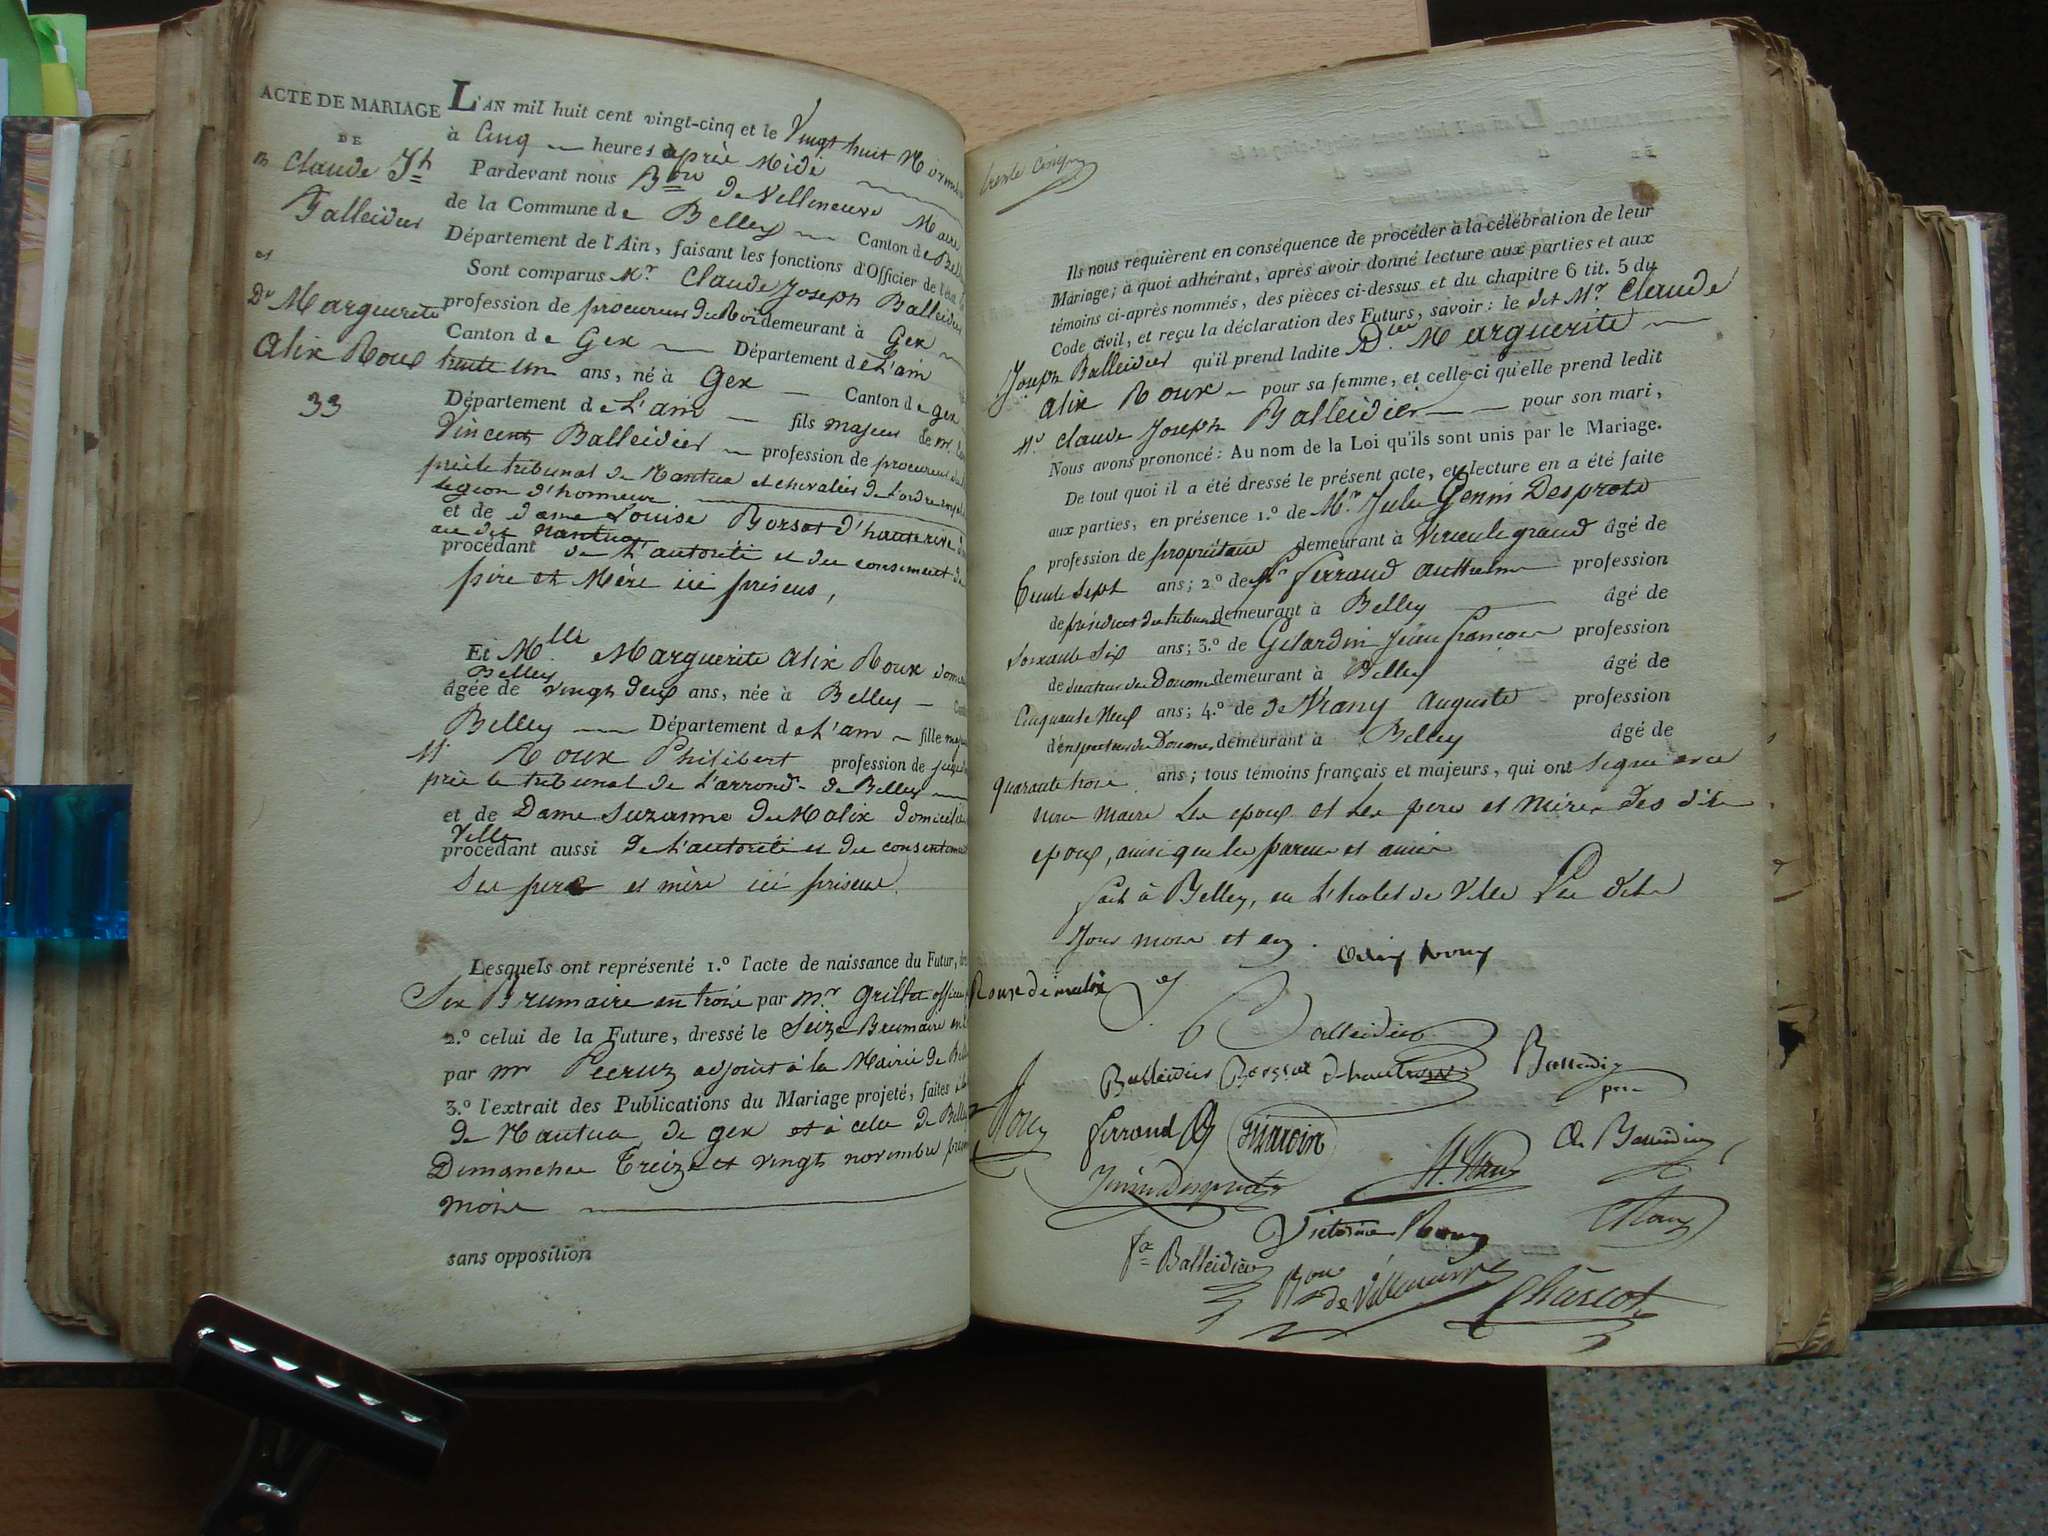 ACTE DE MARIAGE
DE
Claude Jh
Balleidier
et
Dlle Marguerite
Alix Roux
33
L'AN mil huit cent vingt-cinq et le Vingt huit Novembre
à Cinq heures après Midi
Pardevant nous Bon de Villeneuve Maire
de la Commune de Belley Canton de Belley
Département de l'Ain, faisant les fonctions d'Officier de l'état
Sont comparus Mr Claude Joseph Balleidier
profession de procureur du Roi demeurant à Gex
Canton de Gex Département de L'ain
trente un ans, né à Gex Canton de Gex
Département de L'ain fils majeur de Mr
Vincent Balleidier profession de procureur
près le tribunal de Nantua et chevalier de l'ordre
légion d'honneur
et de dame Louise Borsat d'hauterive
au dit Nantua
procédant de L'autorité et du consiment de
père et Mère ici présens,
Et Mlle Marguerite Alix Roux
Belley
âgée de vingt deux ans, née à Belley
Belley Département de L'ain fille
Mr Roux Philibert profession de juge
près le tribunal de L'arrondt de Belley
et de Dame Suzanne de Malix
Ville
procédant aussi de L'autorité et du consentement
Des père et mère ici présens
Lesquels ont représenté 1.º l'acte de naissance du Futur,
Six Brumaire an trois par Mr Grillet
2.º celui de la Future, dressé le Seize Brumaire
par Mr Peeruz adjoint à la Mairie de
3.º l'extrait des Publications du Mariage projeté, faites
de Nantua, de gex et à celle de Belley
Dimanches Treize et vingt novembre
mois
sans opposition
trente cinq
Ils nous requièrent en conséquence de procéder à la célébration de leur
Mariage; à quoi adhérant, après avoir donné lecture aux parties et aux
témoins ci-après nommés, des pièces ci-dessus et du chapitre 6 tit. 5 du
Code civil, et reçu la déclaration des Futurs, savoir: le dit Mr Claude
Joseph Balleidier qu'il prend ladite Dlle Marguerite
Alix Roux pour sa femme, et celle-ci qu'elle prend ledit
Mr Claude Joseph Balleidier pour son mari,
Nous avons prononcé: Au nom de la Loi qu'ils sont unis par le Mariage.
De tout quoi il a été dressé le présent acte, et lecture en a été faite
aux parties, en présence 1.º de Mr Jules Genin Desprots
profession de propriétaire demeurant à Virieu le grand âgé de
Trente Sept ans; 2.º de Mr Ferrand Anthelme profession
de président du tribunal demeurant à Belley âgé de
Soixante Six ans; 3.º de Gilardin Jean françois profession
de directeur des Douanes demeurant à Belley âgé de
Cinquante Neuf ans; 4.º de de Vrany Auguste profession
d'inspecteur des Douanes demeurant à Belley âgé de
quarante trois ans; tous témoins français et majeurs, qui ont signé avec
nous maire Les epoux et Les père et mère des dits
epoux, ainsi que les parens et amis
fait à Belley, en L'hotel de Ville Les dits
Jour mois et an.
Alix Roux
Roux de malix
Balleidier
Balleidier Borssat d'hauterive
Balleidier
père
Roux
Ferrand
Gilardin
Balleidier
Genin Desprots
Victorine Roux
Roux
Balleidier
Bon
de Villeneuve
Chascot